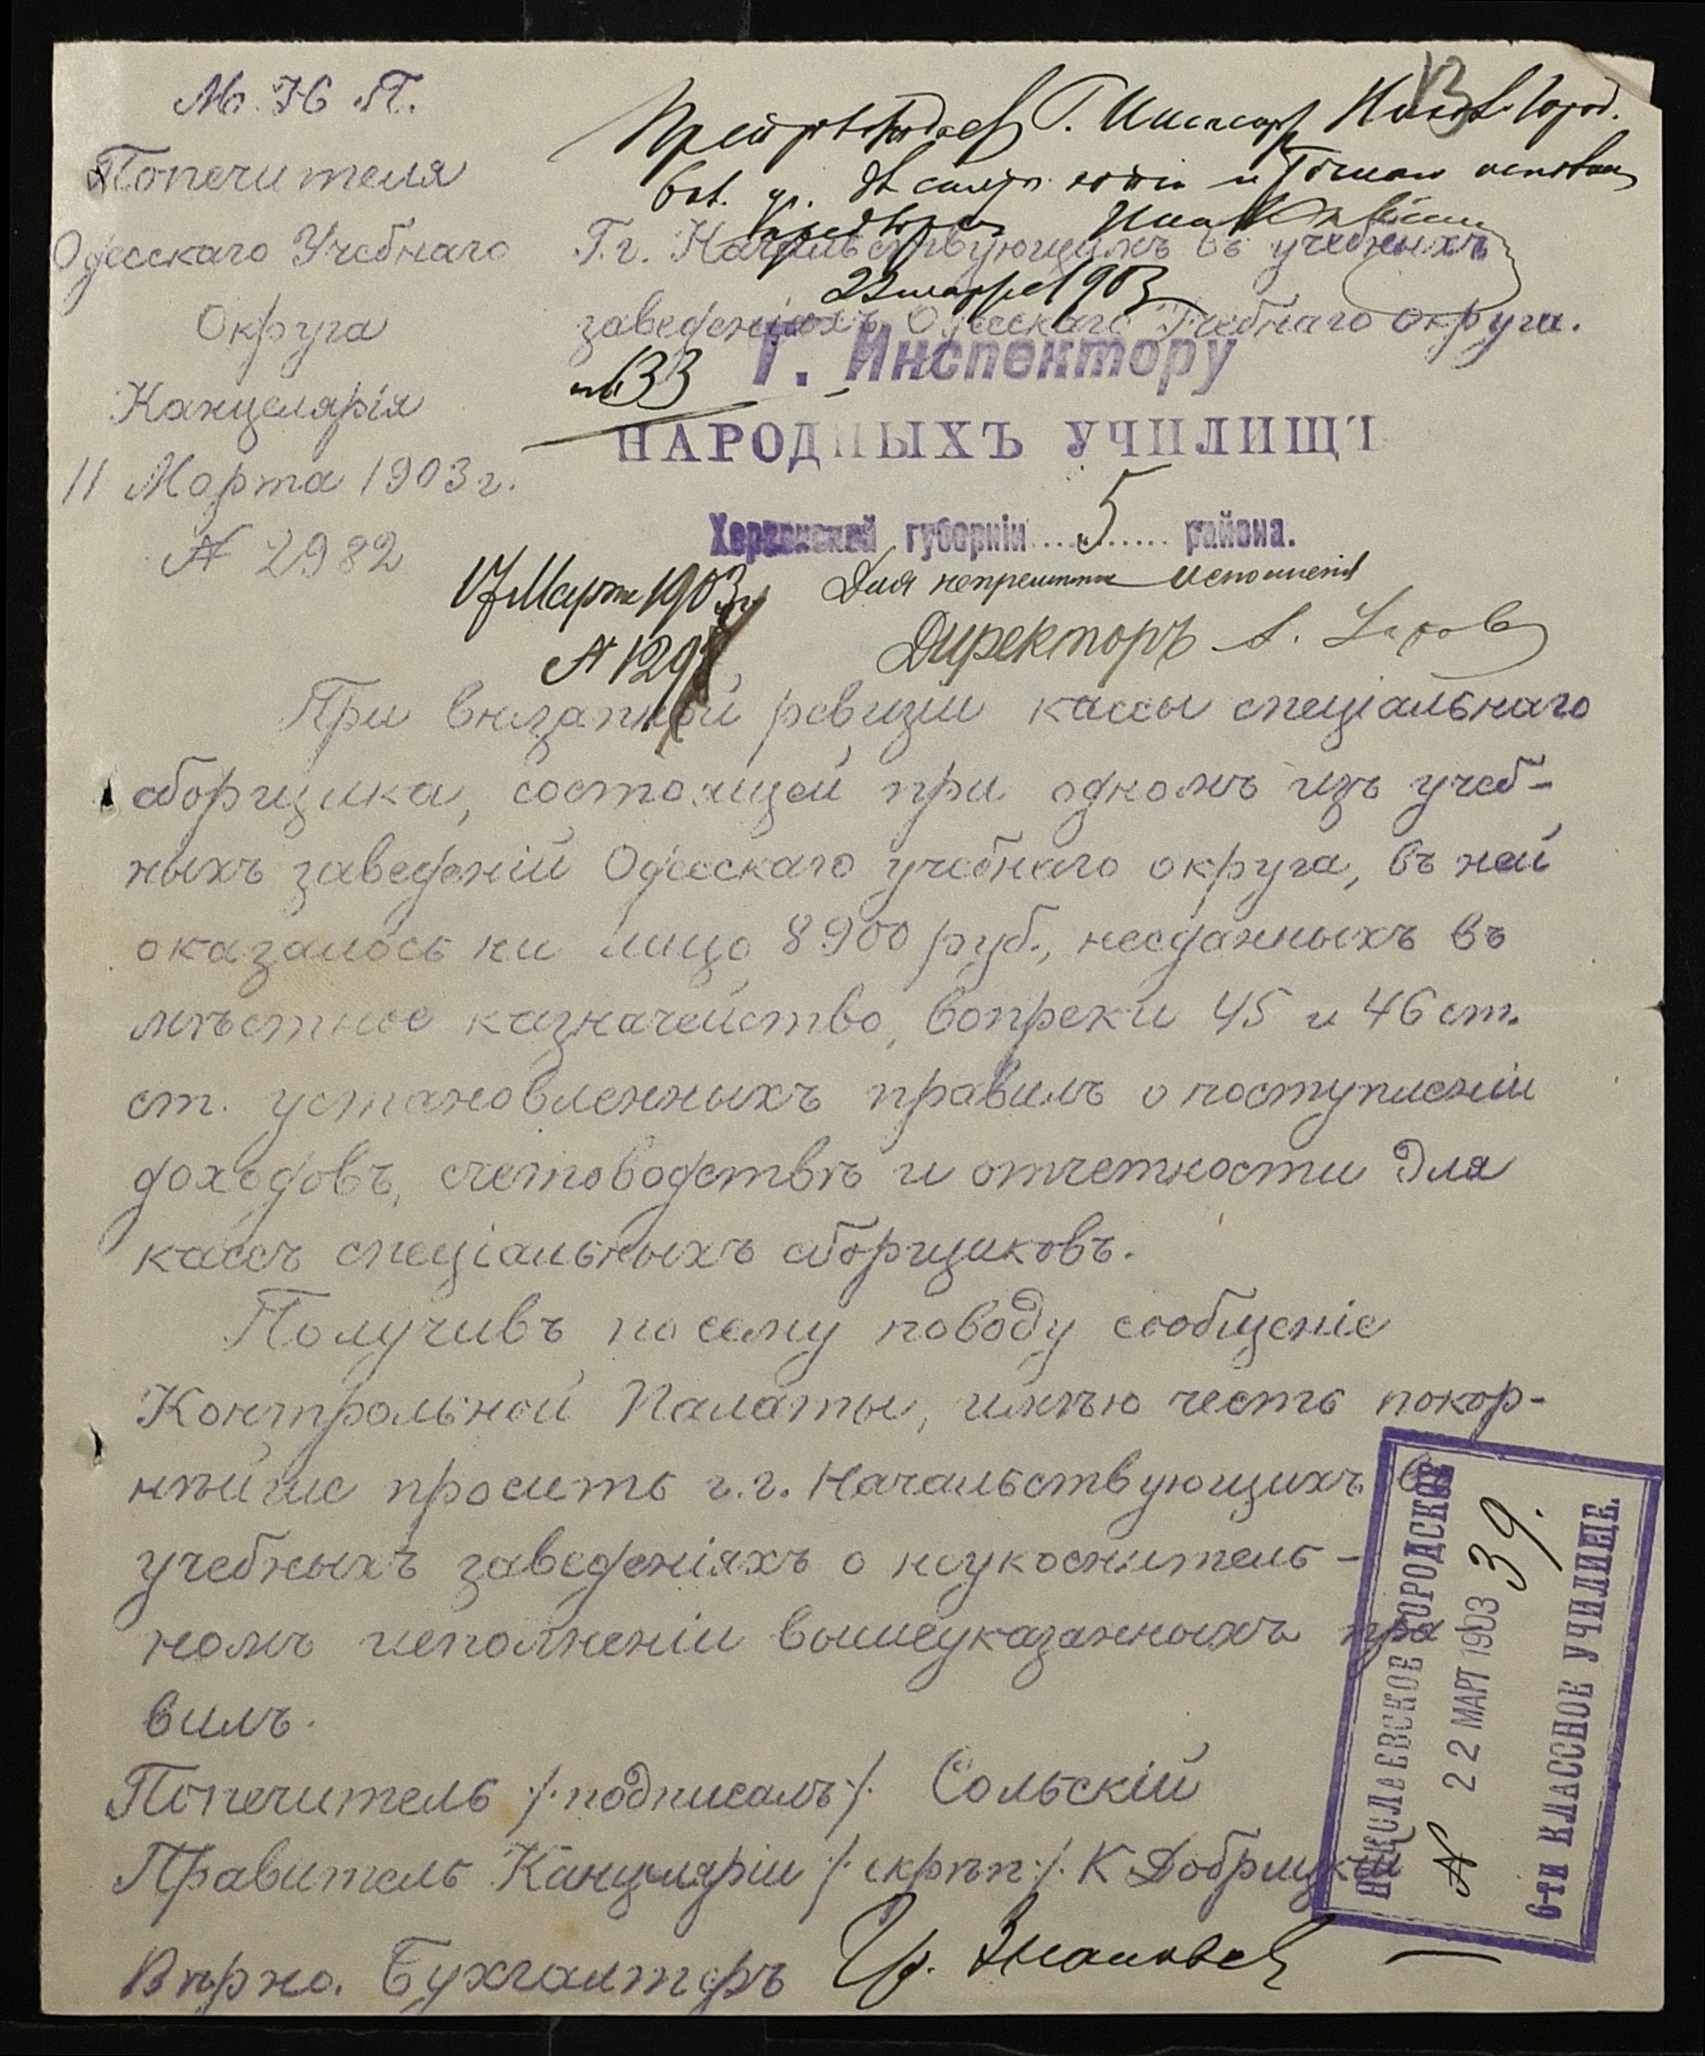 М. Н. П.
Попечителя
Одесскаго Учебнаго
Округа
Канцелярія
11 Марта 1903 г.
№ 2982
13
Г. Город.
22 марта 1903
Г.г. Начальствующимъ въ учебныхъ
заведеніяхъ Одесскаго Учебнаго Округа.
№ 133
Г. Инспектору
НАРОДНЫХЪ УЧИЛИЩЪ
Херсонской губерніи 5 района.
17 Марта 1903 г.
Для исполненія
Директоръ
При внезапной ревизіи кассы спеціальнаго
сборщика, состоящей при одномъ изъ учеб-
ныхъ заведеній Одесскаго учебнаго округа, въ ней
оказалось на лицо 8900 руб., несданныхъ въ
мѣстное казначейство, вопреки 45 и 46 ст.
ст. установленныхъ правилъ о поступленіи
доходовъ, счетоводствѣ и отчетности для
кассъ спеціальныхъ сборщиковъ.
Получивъ по сему поводу сообщеніе
Контрольной Палаты, имѣю честь покор-
нѣйше просить г.г. Начальствующихъ въ
учебныхъ заведеніяхъ о неукоснитель-
номъ исполненіи вышеуказанныхъ пра
вилъ.
Попечитель /подписалъ/ Сольскій
Правитель Канцеляріи /скрѣп./ К
Вѣрно. Бухгалтеръ
НИКОЛАЕВСКОЕ ГОРОДСКОЕ
№ 22 МАРТ 1903 39.
6-ТИ КЛАССНОЕ УЧИЛИЩЕ.